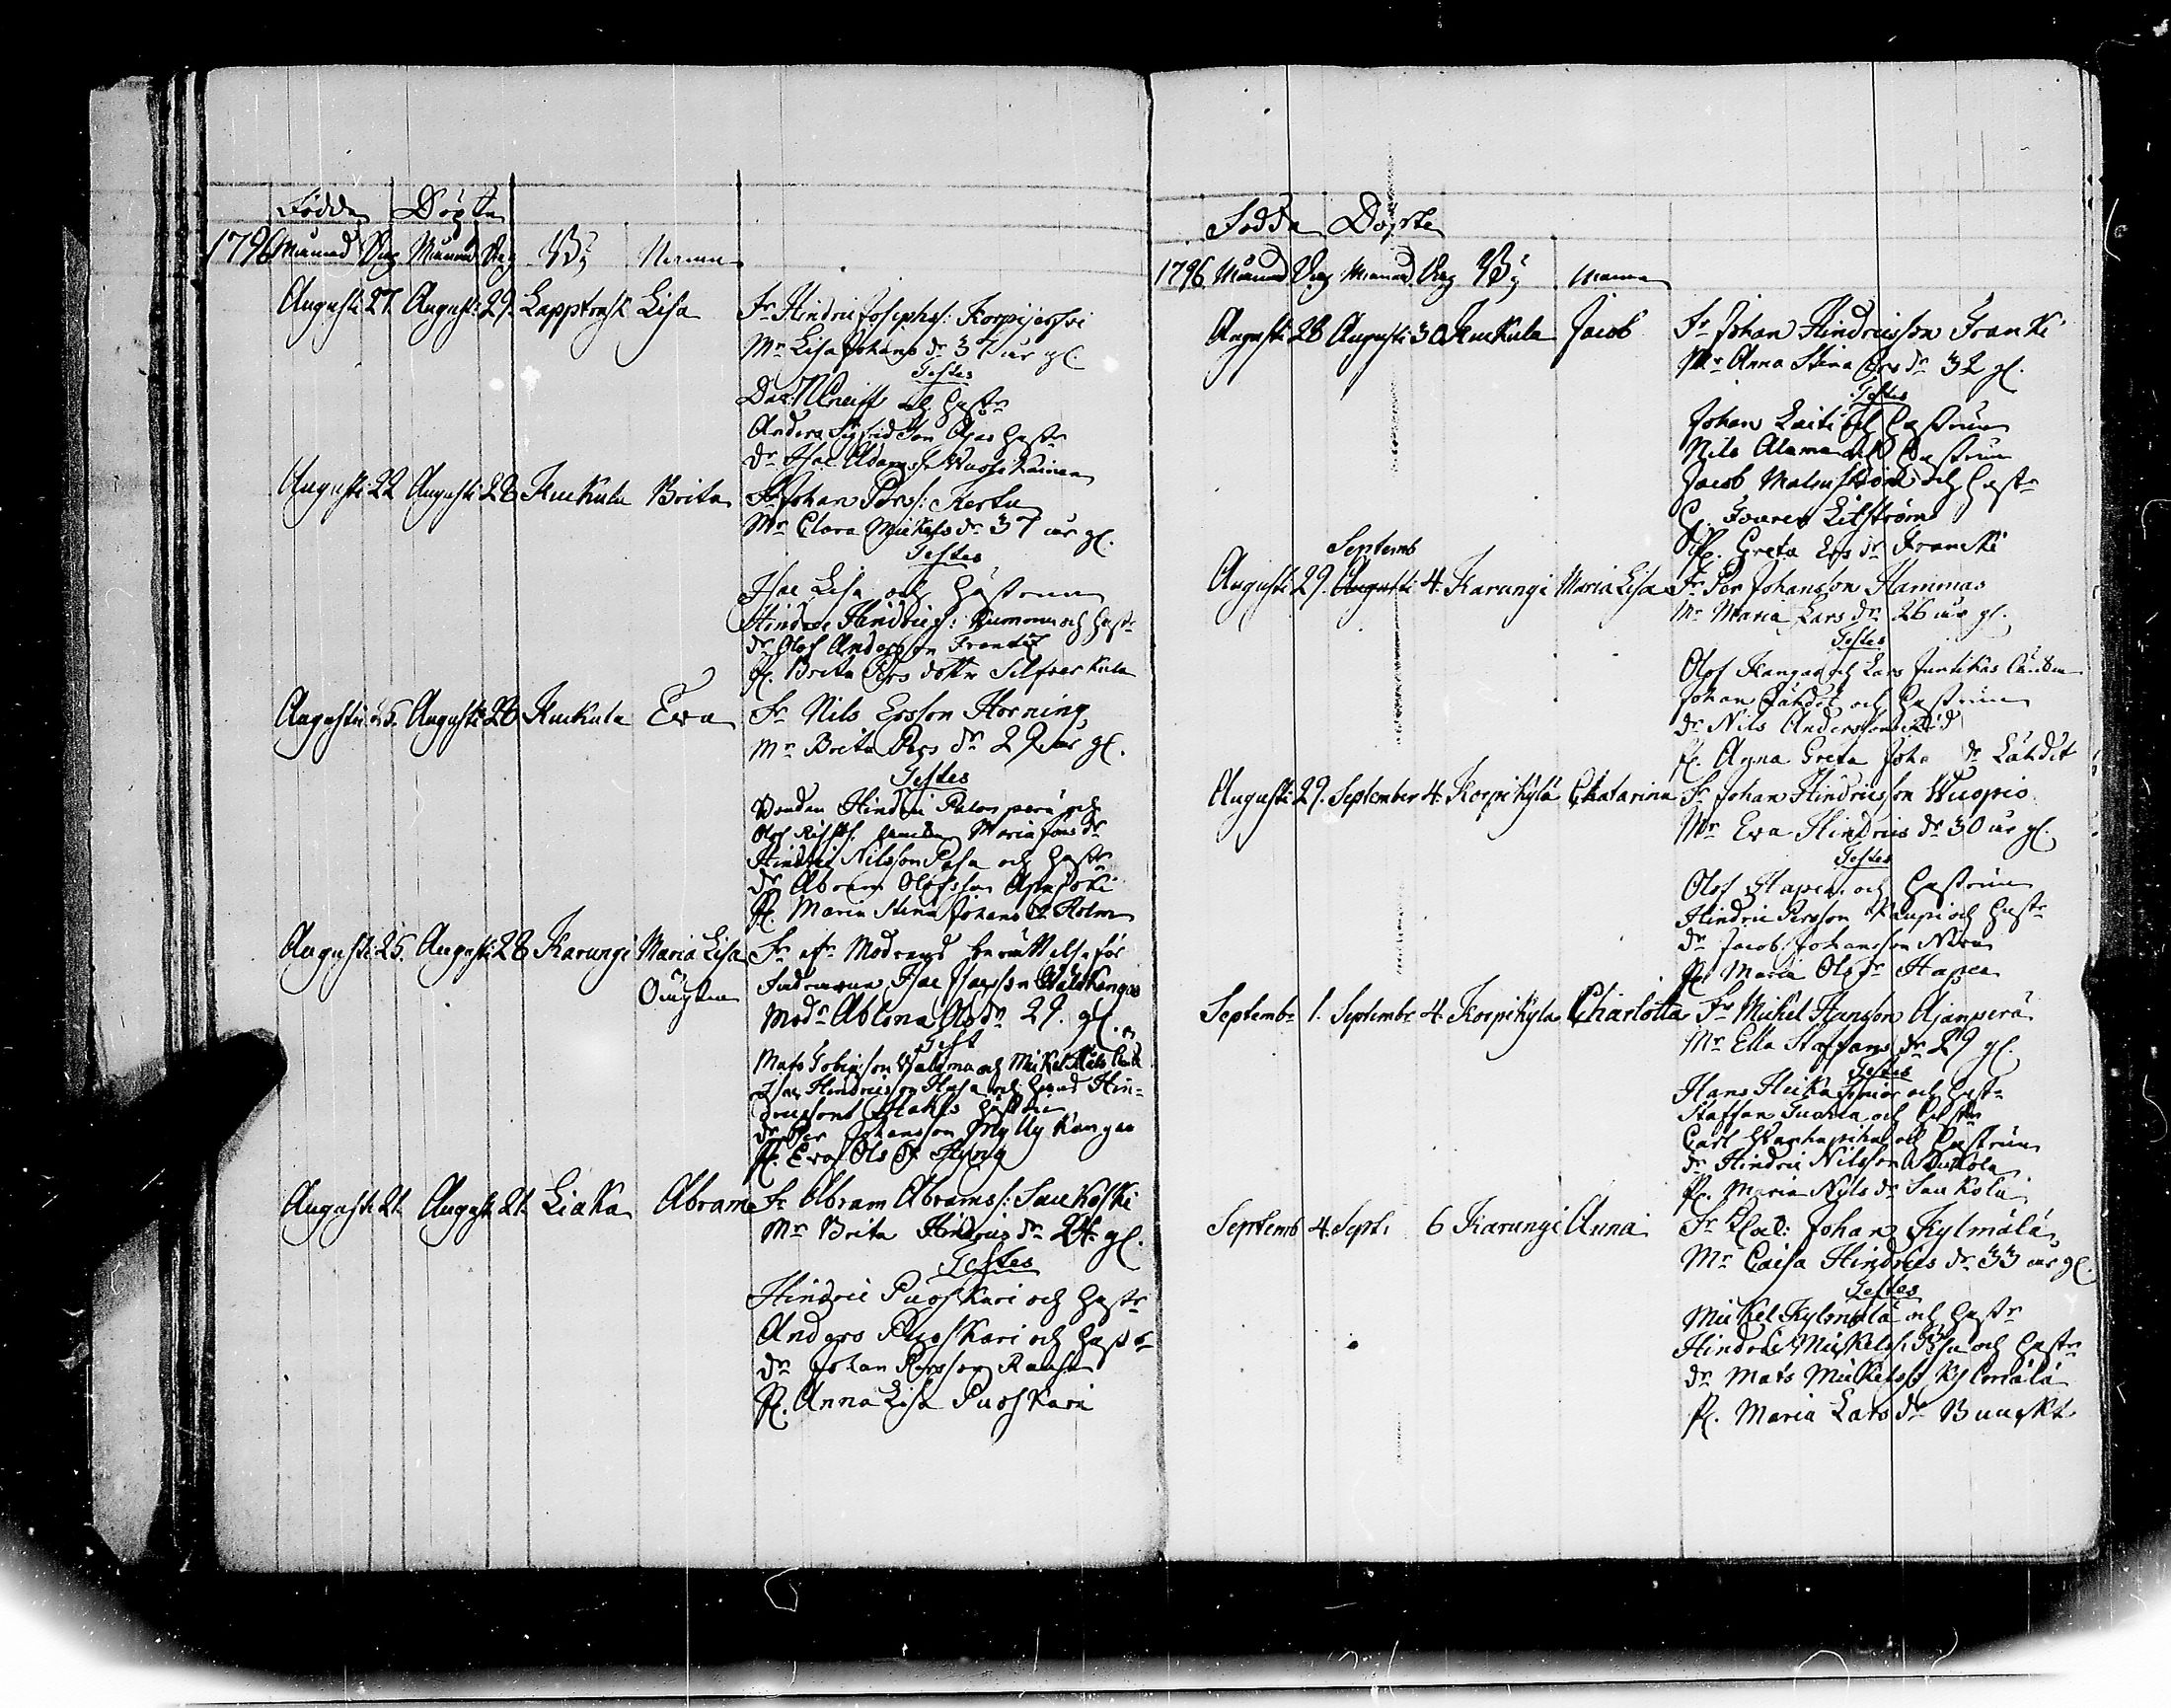 Födde Döpte
1796 Månad Dag Månad Dag By Namn
Augusti 27. Augusti 29. Lapptresk Lisa Fr Hindric Josephs: Korpijerfvi
Mr Lisa Johans dr 37 år gl.
Testes
och hustr
Anders Sigfridson Ajas hustr
dr Isac Adamss:
Augusti 22 Augusti 28 Kuckula Brita Fr Johan Pers: Kerttu
Mr Clara Mickels dr 37 år gl.
Testes
Isac Lisa och hustrun
Hindric Hindrics: Kummu och hustr
dr Olof Andersson Frantz
p. Brita Pers dotter Silfverkula
Augusti 25. Augusti 28 Kuckula Eva Fr Nils Ersson Horning
Mr Brita Pers dr 29 år gl.
Testes
Bonden Hindric Palovperä och
Olof Maria Jons dr
Hindric Nilsson Pasa och hustr
dr Abram Olofsson
p. Maria Stina Johans dr Holm
Augusti 25. Augusti 28 Karungi Maria Lisa Fr efr Modrens berättelse för
Oägta Isac Isacsson
Modr Ablona Ols dr 29. gl.
Test
Mats Tobiasson och Mickel
Isac Hindricsson och Hin-
dricsons hustru
dr Per Johansson Myllykangas
p. Eva Ols dr
Augusti 21. Augusti 21. Liaka Abram Fr Abram Abrams: Saukoski
Mr Brita Hindrics dr 24 gl.
Testes
Hindric Puoskari och hustr
Anders Puoskari och hustr
dr Johan Persson Rausa
p. Anna Lisa Puoskari
Födda Döpte
1796 Månad Dag Månad Dag By Namn
Augusti 28 Augusti 30 Kuckula Jacob Fr Johan Hindricsson Franki
Mr Anna Stina Ers dr 32 gl.
Testes
Johan Laiti och hustrun
Nils Alama och hustrun
Jacob Malmström och hustr
C. Litström
p. Greta Ers dr Francki
Septemb
Augusti 29. Augusti 4. Karungi Maria Lisa Fr Per Johansson Hammas
Mr Maria Lars dr 26 år gl.
Testes
Olof Kangas och Lars Juntikas
Johan Lahdet och hustrun
dr Nils Andersson
p. Anna Greta Joha dr Lahdet
Augusti 29. September 4. Korpikylä Chatarina Fr Johan Hindricsson Wuopio
Mr Eva Hindrics dr 30 år gl.
Testes
Olof Hapea och hustrun
Hindric Persson Kaupi och hustr
dr Jacob Johansson Niva
p. Maria Ols dr Hapea
Septembr 1. Septembr 4. Korpikyla Charlotta Fr Mickel Hansson Ajanperä
Mr Ella Staffans dr 29 gl.
Testes
Hans Huika Junior och hustr
Staffan Tuoria och hustr
Carl och hustrun
dr Hindric Nilsson
p. Maria Nils dr Saukola
Septemb 4. Septr 6 Karungi Anna Fr Sold: Johan Kylmälä
Mr Caisa Hindrics dr 33 år gl.
Testes
Mickel Kylmälä och hustr
Hindric Mickels: och hustr
dr Mats Mickelss: Kylmälä
p. Maria Lars dr